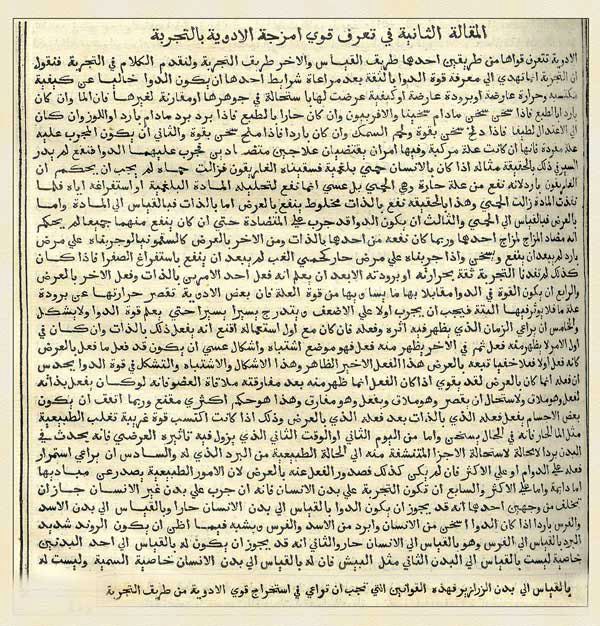 المقالة الثانية في تعرف قوي امزجة الادوية بالتجربة
الادوية تتعرن قواها من طريقين احدهما طريف القياس والاخر طريف التجربة ولنقدم الكلام في التجربة فنقول
ان التجربة انما تهدي الي معرفة قوة الدوا بالثقة بعد مراعاة شرايط احدها ان يكون الدوا خاليا عن كيفية
مكتسبة وحرارة عارضة اوبرودة عارضة اوكيفية عرضت لها باستحالة في جوهرها اومقارنة لغيرها فان الما وان كان
باردا بالطبع فاذا سخن سخن مادام سخينا والافربيون وان كان حارا بالطبع فاذا برد برد مادام باردا واللوز وان كان
الي الاعتدال لطيفا فاذا زنخ سخن بقوة ولحم السمك وان كان باردا فاذا ملح سخن بقوة والثاني ان يكون المجرب عليه
علة مفردة فانها ان كانت علة مركبة وفيها امران يقتضيان علاجين متضادين فجرب عليهما الدوا فنفع لم يدر
السبر في ذلك بالحقيقة مثاله اذا كان بالانسان حمي بلغمية فسقيناه الغاريقون فزالت حماه لم يجب ان يحكم ان
الغاريقون بارد لانه نفع من علة حارة وهي الحمي بل عسي انما نفع لتحليله المادة البلغمية او استفراغه اياه فلما
نفدت المادة زالت الحمي وهذا بالحقيقة نفع بالذات مخلوط بنفع بالعرض اما بالذات فبالقياس الي المادة واما
بالعرض فبالقياس الي الحمي والثالث ان يكون الدوا قد جرب علي المتضادة حتي ان كان ينفع منهما جميعا لم يحكم
انه مضاد المزاج لمزاج احدهما وربما كان نفعه من احدهما بالذات ومن الاخر بالعرض كالسقمونيا لوجربناه علي مرض
بارد لم يبعد ان ينفع ويسخن واذا جربناه علي مرض حار كحمي الغب لم يبعد ان ينفع باستفراغ الصفرا فاذا كان
كذلك لم تفدنا التجربة ثقة بحرارته او برودته الا بعد ان يعلم انه فعل احد الامرين بالذات وفعل الاخر بالعرض
والرابع ان يكون القوة في الدوا مقابلا بها ما يساويها من قوة العلة فان بعض الادوية تقصر حرارتها عن برودة
علة ما فلا يوثر فيها البتة فيجب ان يجرب اولا علي الاضعف ويتدرج يسيرا يسيرا حتي يعلم قوة الدوا ولا يشكل
والخامس ان يراعي الزمان الذي يظهر فيه اثره وفعله فان كان مع اول استعماله اقنع انه يفعل ذلك بالذات وان كان في
اول الامر لا يظهر منه فعل ثم في الاخر يظهر منه فعل فهو موضع اشتباه واشكال عسي ان يكون قد فعل ما فعل بالعرض
كانه فعل اولا فعلا خفيا تبعه بالعرض هذا الفعل الاخير الظاهر وهذا الاشكال والاشتباه والتشكل في قوة الدوا يحدس
ان فعله انما كان بالعرض لقد يقوي اذا كان الفعل انما ظهر منه بعد مفارقته ملاقاة العضو فانه لو كان يفعل بذاته
لفعل وهو ملاق ولاستحال ان يقصر وهو ملاق ويفعل وهو مفارق وهذا هو حكم اكثري مقنع وربما اتفق ان يكون
بعض الاجسام يفعل فعله الذي بالذات بعد فعله الذي بالعرض وذلك اذا كانت اكتسب قوة غريبة تغلب الطبيعية
مثل الما الحار فانه في الحال يسخن واما من اليوم الثاني او الوقت الثاني الذي يزول فيه تاثيره العرضي فانه يحدث في
البدن بردا لا محالة لاستحالة الاجزا المتنشفة منه الي الحالة الطبيعية من البرد الذي له والسادس ان يراعي استمرار
فعله علي الدوام او علي الاكثر فان لم يكن كذلك فصدور الفعل عنه بالعرض لان الامور الطبيعية يصدر عن مباديها
اما دايمة واما علي الاكثر والسابع ان تكون التجربة علي بدن الانسان فانه ان جرب علي بدن غير الانسان جاز ان
تختلف من وجهين احدهما انه قد يجوز ان يكون الدوا بالقياس الي بدن الانسان حارا وبالقياس الي بدن الاسد
والفرس باردا اذا كان الدوا اسخن من الانسان وابرد من الاسد والفرس ويشبه فيما اظن ان يكون الروند شديد
البرد بالقياس الي الفرس وهو بالقياس الي الانسان حار والثاني انه قد يجوز ان يكون له بالقياس الي احد البدنين
خاصية ليست بالقياس الي البدن الثاني مثل البيش فان له بالقياس الي بدن الانسان خاصية السمية وليست له
بالقياس الي بدن الزرازير فهذه القوانين التي تجب ان تراعي في استخراج قوي الادوية من طريف التجربة